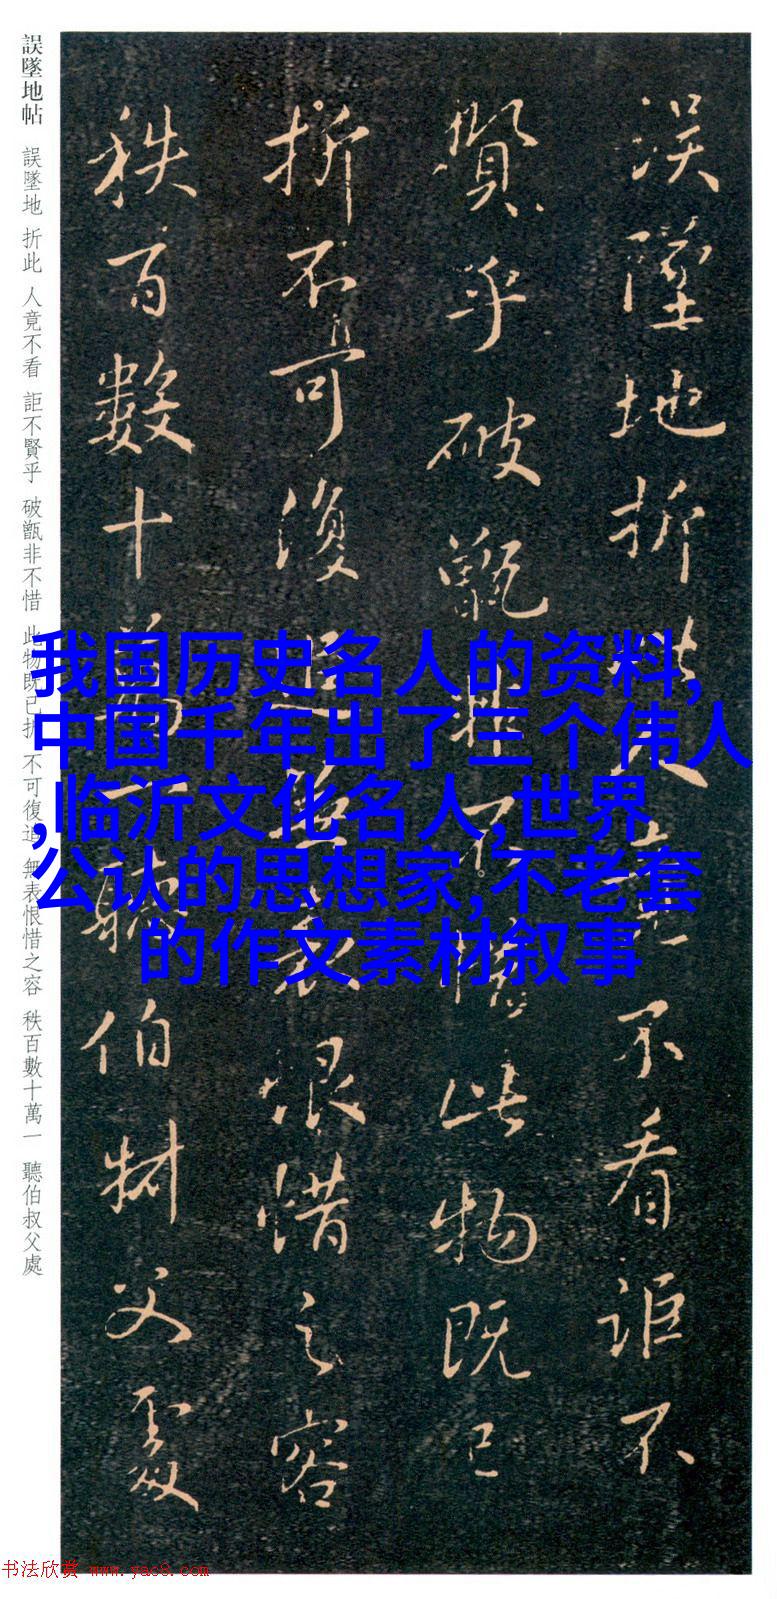 誤墜地折此人竟不看詎不
賢乎破甑非不惜此物既已
折不可復追無表恨惜之容
秩百數十萬一聽伯叔父處
誤墜地帖 誤墜地 折此 人竟不看 詎不賢乎 破甑非不惜 此物既已折 不可復追 無表恨惜之容 秩百數十萬一 聽伯叔父處
我国历史名人的资料,
中国千年出了三个伟人
,临沂文化名人,世界
公认的思想家,不老套
的作文素材叙事
书法欣赏 www.yac8.com